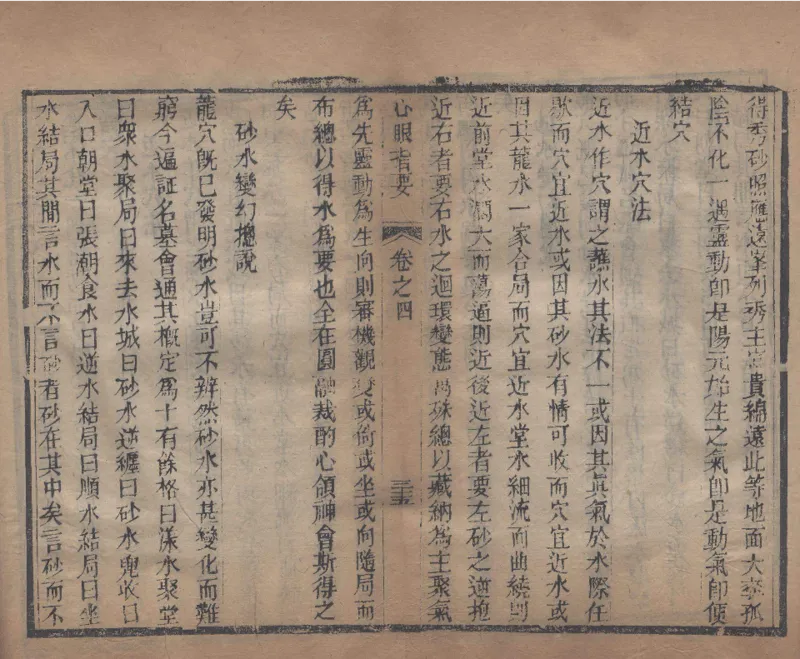 得秀砂照應遠峯列秀主富貴綿遠此等地面大率孤
陰不化一遇靈動即是陽元始生之氣即是動氣即傾
結穴
近水穴法
近水作穴謂之蘸水其法不一或因其眞氣於水際任
歇而穴宜近水或因其砂水有情可收而穴宜近水或
因其龍水一家合局而穴宜近水堂水細流而曲繞則
近前堂水濶大而蕩逼則近後近左者要左砂之逆抱
近右者要右水之迴環變態萬殊總以藏納為主聚氣
心眼指要 卷之四 三十五
為先靈動為生向則審機觀變或倚或坐或向隨局而
布總以得水為要也全在圓融裁酌心領神會斯得之
矣
砂水變幻摠說
龍穴旣已發明砂水豈可不辨然砂水亦甚變化而難
窮今遍証名墓會通其槪定為十有餘格曰漾水聚堂
曰衆水聚局曰來去水城曰砂水逆纒曰砂水兜收曰
入口朝堂曰張潮食水曰逆水結局曰順水結局曰坐
水結局其間言水而不言砂者砂在其中矣言砂而不